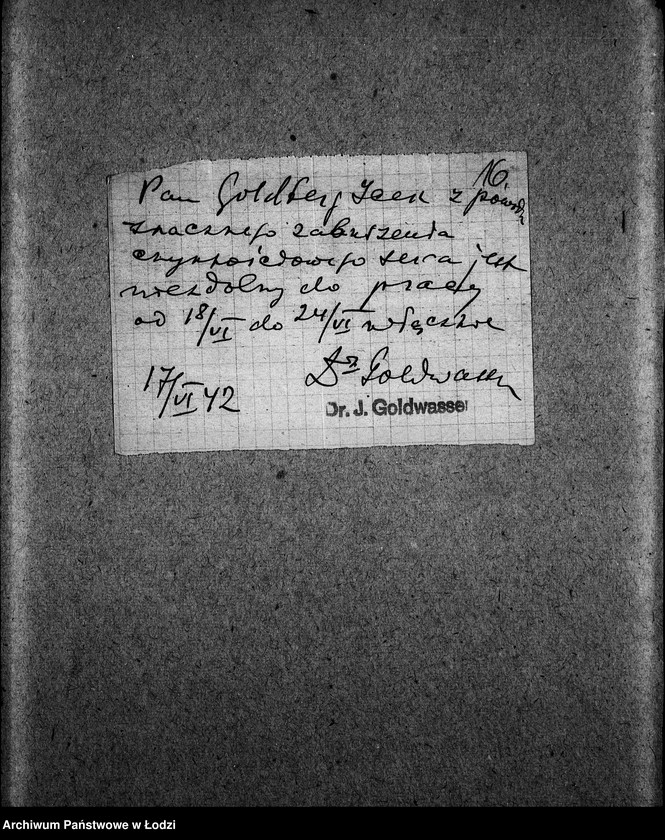 16
Pan Goldberg Icek z powodu
znacznego zaburzenia
czynnościowego serca jest
niezdolny do pracy
od 18/VI do 24/VI włącznie
17/VI 42
Dr Goldwasser
Dr. J. Goldwasser
Archiwum Państwowe w Łodzi